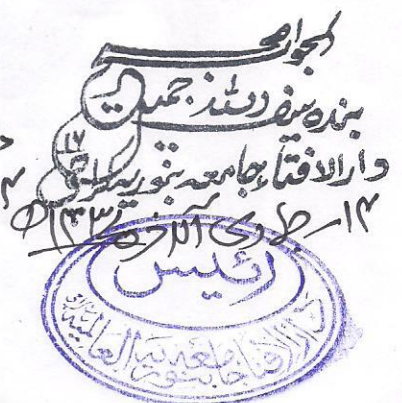 الجواب صحیح
بندہ سیف اللہ جمیل
دارالافتاء جامعہ بنوریہ کراچی ۱۷
۱۴- جمادی الآخرۃ
رئیس
دارالافتاء جامعہ بنوریہ العالمیہ